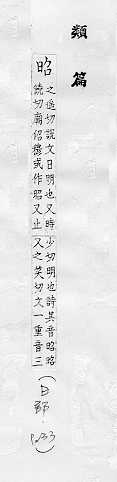 類篇
昭
之遥切說文日明也又時
饒切廟佋穆或作昭又止
少切明也詩其音昭昭
又之笑切文一重音三
(日部. P233)